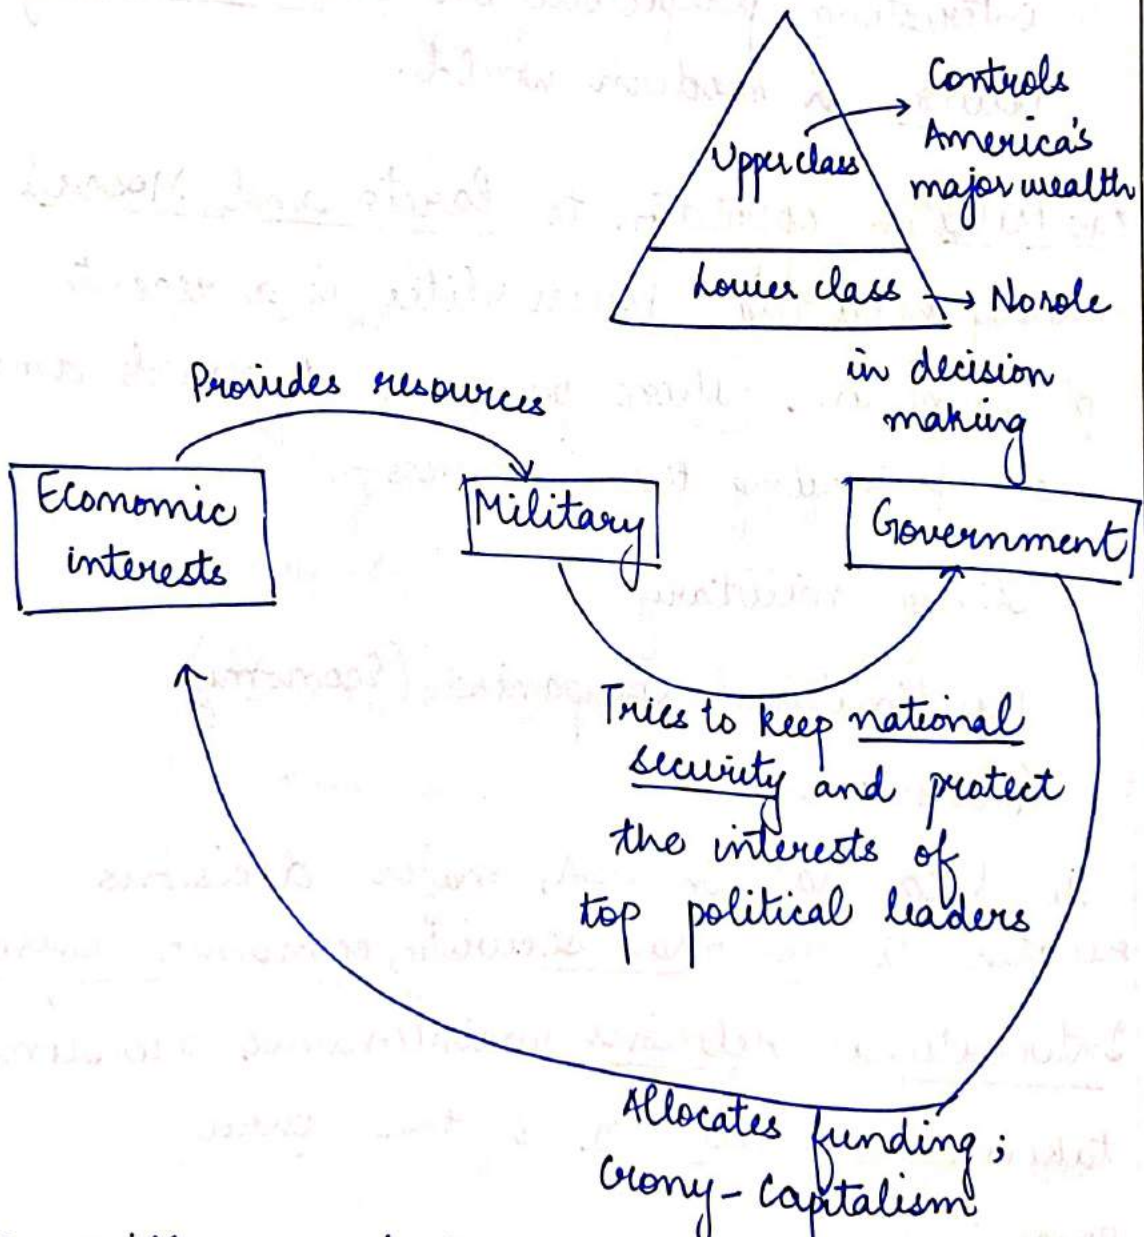 Controls
America's
major wealth
Upper class
Lower class
No role
in decision
making
Provides resources
Economic
interests
Military
Government
Tries to keep national
security and protect
the interests of
top political leaders
Allocates funding;
Crony-Capitalism